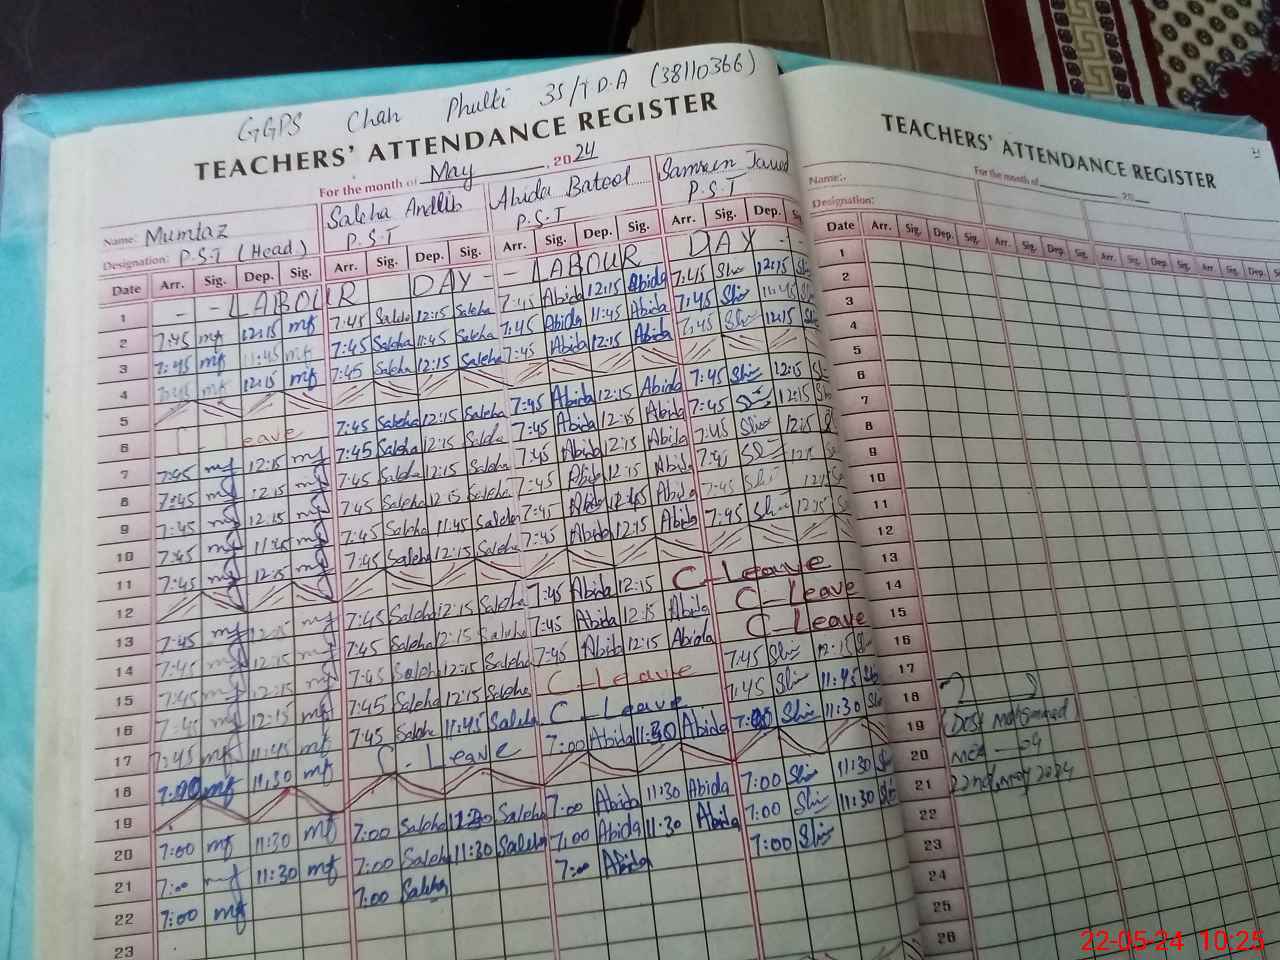 GGPS Chah Phulli 35/T.D.A (38110366)
TEACHERS' ATTENDANCE REGISTER
For the month of May, 2024
Name: Mumtaz Saleha Andlib Abida Batool Samreen Javed
Designation: P.S.T (Head) P.S.T P.S.T P.S.T
Date Arr. Sig. Dep. Sig. Arr. Sig. Dep. Sig. Arr. Sig. Dep. Sig. Arr. Sig. Dep. S
1 - - LABOUR DAY - - LABOUR DAY - -
2 7:45 12:15 7:45 Saleha 12:15 Saleha 7:45 Abida 12:15 Abida 7:45 12:15
3 7:45 11:45 7:45 Saleha 11:45 Saleha 7:45 Abida 11:45 Abida 7:45 11:45
4 7:45 12:15 7:45 Saleha 12:15 Saleha 7:45 Abida 12:15 Abida 7:45 12:15
5
6 C - Leave 7:45 Saleha 12:15 Saleha 7:45 Abida 12:15 Abida 7:45 12:15
7 7:45 12:15 7:45 Saleha 12:15 Saleha 7:45 Abida 12:15 Abida 7:45 12:15
8 7:45 12:15 7:45 Saleha 12:15 Saleha 7:45 Abida 12:15 Abida 7:45 12:15
9 7:45 12:15 7:45 Saleha 12:15 Saleha 7:45 Abida 12:15 Abida 7:45
10 7:45 11:45 7:45 Saleha 11:45 Saleha 7:45 Abida Abida 7:45
11 7:45 12:15 7:45 Saleha 12:15 Saleha 7:45 Abida 12:15 Abida 7:45 12:15
12
13 7:45 12:15 7:45 Saleha 12:15 Saleha 7:45 Abida 12:15 C - Leave
14 7:45 12:15 7:45 Saleha 12:15 Saleha 7:45 Abida 12:15 Abida C - Leave
15 7:45 12:15 7:45 Saleha 12:15 Saleha 7:45 Abida 12:15 Abida C - Leave
16 7:45 12:15 7:45 Saleha 12:15 Saleha C - Leave 7:45 12:15
17 7:45 11:45 7:45 Saleha 11:45 Saleha C - Leave 7:45 11:45
18 7:00 11:30 C - Leave 7:00 Abida 11:30 Abida 7:00 11:30
19
20 7:00 11:30 7:00 Saleha 11:30 Saleha 7:00 Abida 11:30 Abida 7:00 11:30
21 7:00 11:30 7:00 Saleha 11:30 Saleha 7:00 Abida 11:30 Abida 7:00 11:30
22 7:00 7:00 Saleha 7:00 Abida 7:00
23
TEACHERS' ATTENDANCE REGISTER
For the month of 20
Name:
Designation:
Date Arr. Sig. Dep. Sig. Arr. Sig. Dep. Sig. Arr. Sig. Dep. Sig. Arr. Sig. Dep.
1
2
3
4
5
6
7
8
9
10
11
12
13
14
15
16
17
18
19 Dost Mohammad
20 MEA - 04
21 22nd May 2024
22
23
24
25
26
22-05-24 10:25